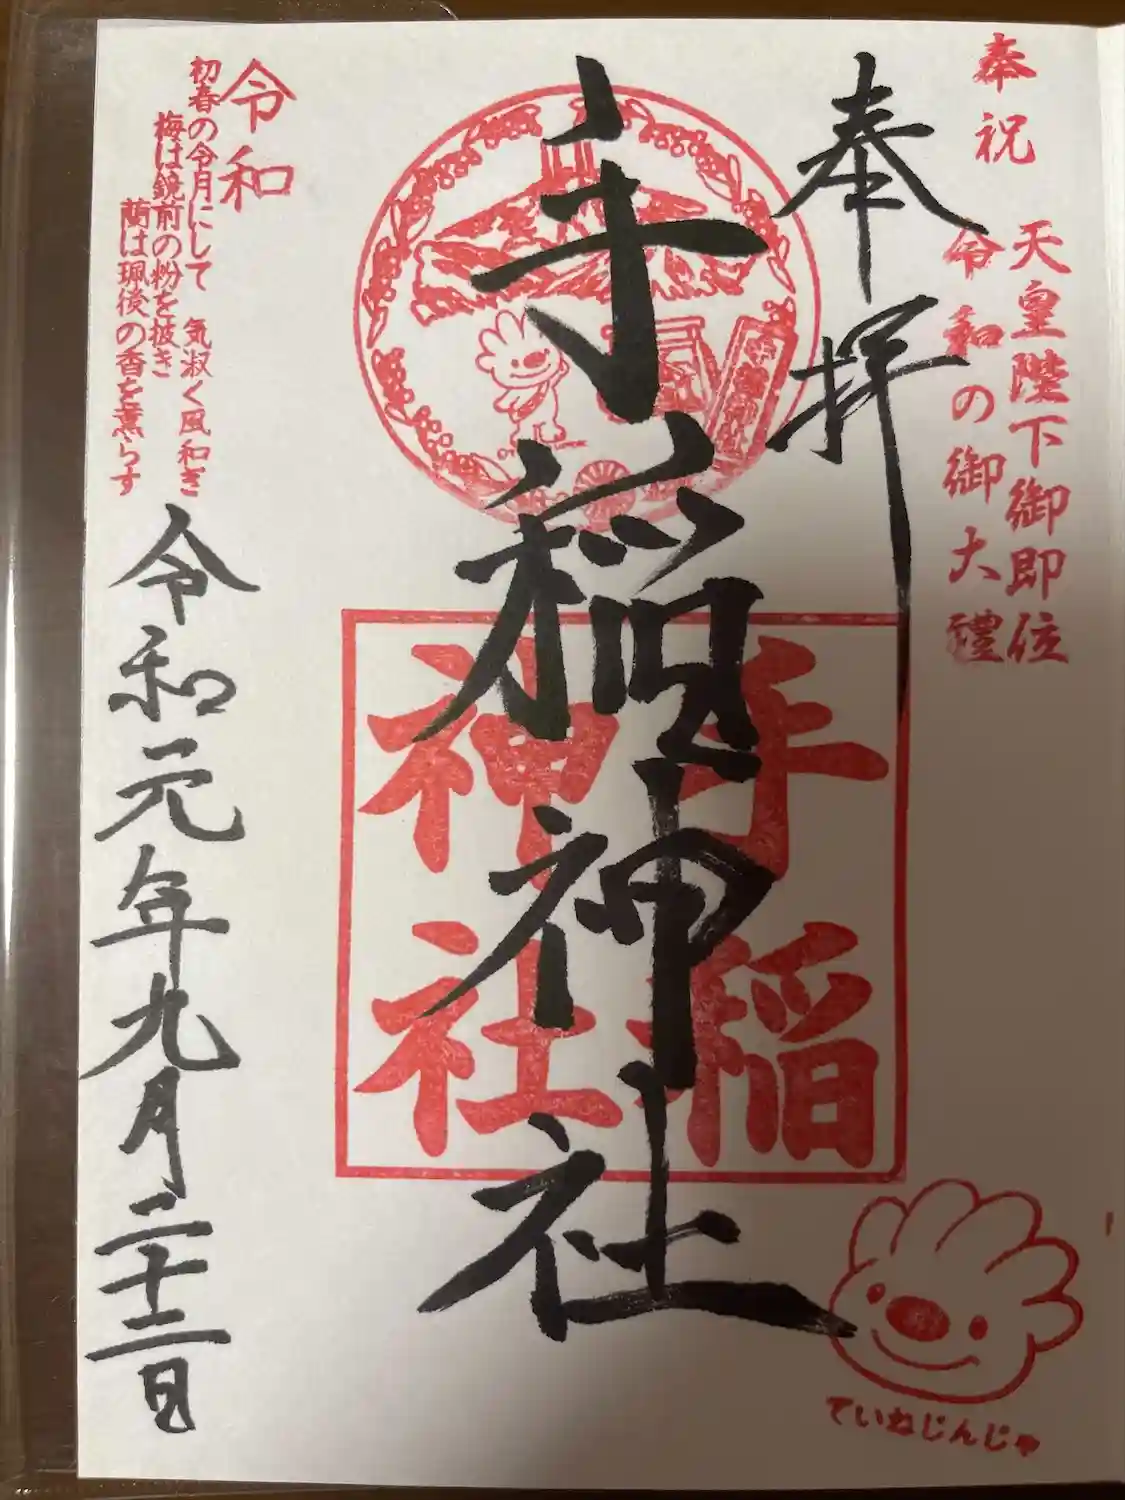 奉祝
天皇陛下御即位
令和の御大禮
奉拝
手稲神社
手稲
神社
令和
初春の令月にして 気淑く風和ぎ
梅は鏡前の粉を披き
蘭は珮後の香を薫らす
令和元年九月二十二日
ていねじんじゃ